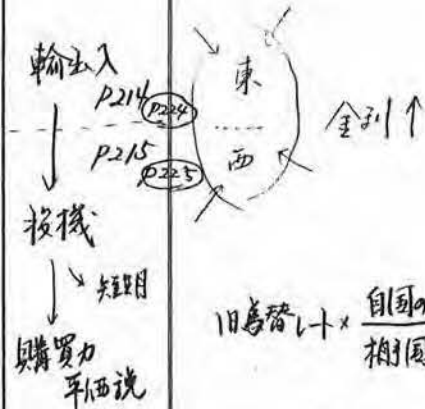 輸出入
P214
P224
P215
P225
投機
↘ 短期
購買力
平価説
東
西
金利↑
旧為替レート×
自国の
相手国